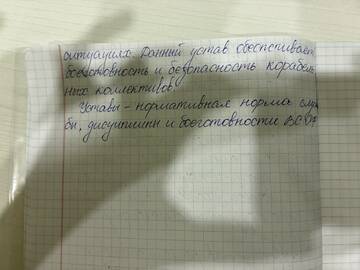 ситуациях. Данный устав обеспечивает
боеготовность и безопасность корабель-
ных коллективов.
Уставы - нормативная норма служ
бы, дисциплины и боеготовности ВС РФ